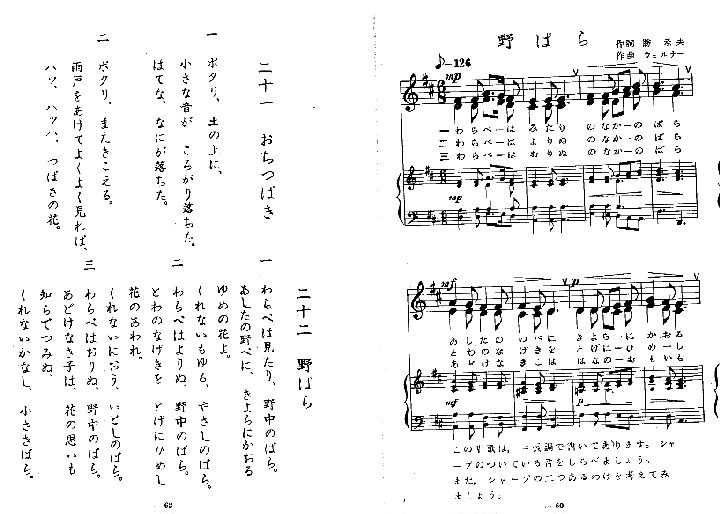 二十一 おちつばき
一
ポタリ、土の上に、
小さな音が ころがり落ちた。
はてな、なにが落ちた。
二
ポタリ、またきこえる。
雨戸をあけてよくよく見れば、
ハッ、ハッハ、つばきの花。
二十二 野ばら
一
わらべは見たり、野中のばら。
あしたの野べに、きよらにかおる
ゆめの花よ。
くれないもゆる、やさしのばら。
二
わらべはよりぬ、野中のばら。
とわのなげきを とげにひめし
花のあわれ。
くれないにおう、いとしのばら。
三
わらべはおりぬ、野中のばら。
あどけなき子は、花の思いも
知らでつみぬ。
くれないかなし、小さきばら。
62
野ばら
作曲 ウェルナー
♪=126
mp
一わらべーは みたり のなかーの ばら
二わらべーは よりぬ のなかーの ばら
三わらべーは おりぬ のなかーの ばら
mp
mf
mf
この
ープのついている音をしらべましょう。
また、シャープの二つあるわけを考えてみ
ましょう。
60